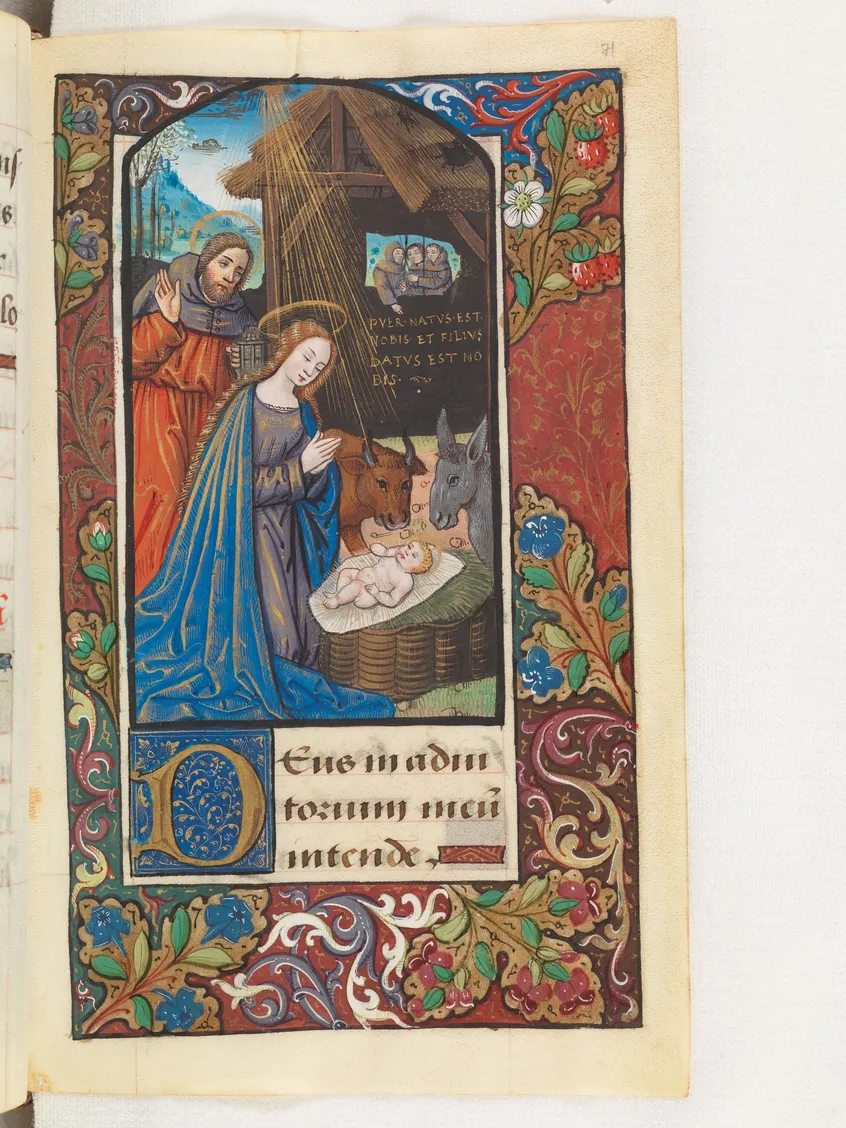 71
PVER·NATVS·EST·
NOBIS·ET FILIVS
DATVS EST NO
BIS·
DEus in adiu
torium meū
intende